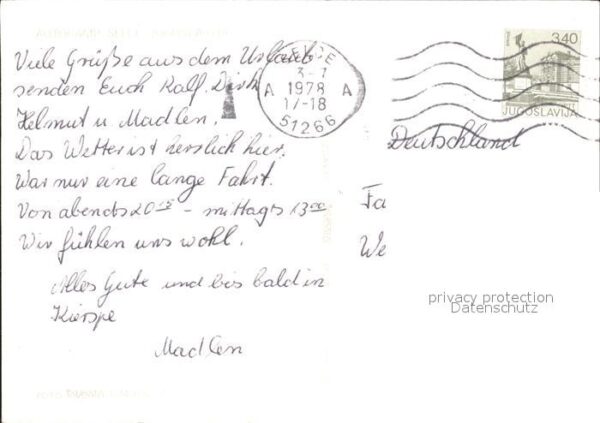 Viele Grüße aus dem Urlaub
senden Euch Ralf, Dirk
Helmut u Madlen.
Das Wetter ist herrlich hier.
War nur eine lange Fahrt.
Von abends 20 15 - mittags 13 00
Wir fühlen uns wohl.
Alles Gute und bis bald in
Kierspe
Madlen
SELCE
3-7
A 1978 A
17-18
51266
3.40
JUGOSLAVIJA
Deutschland
Fa
We
privacy protection
Datenschutz